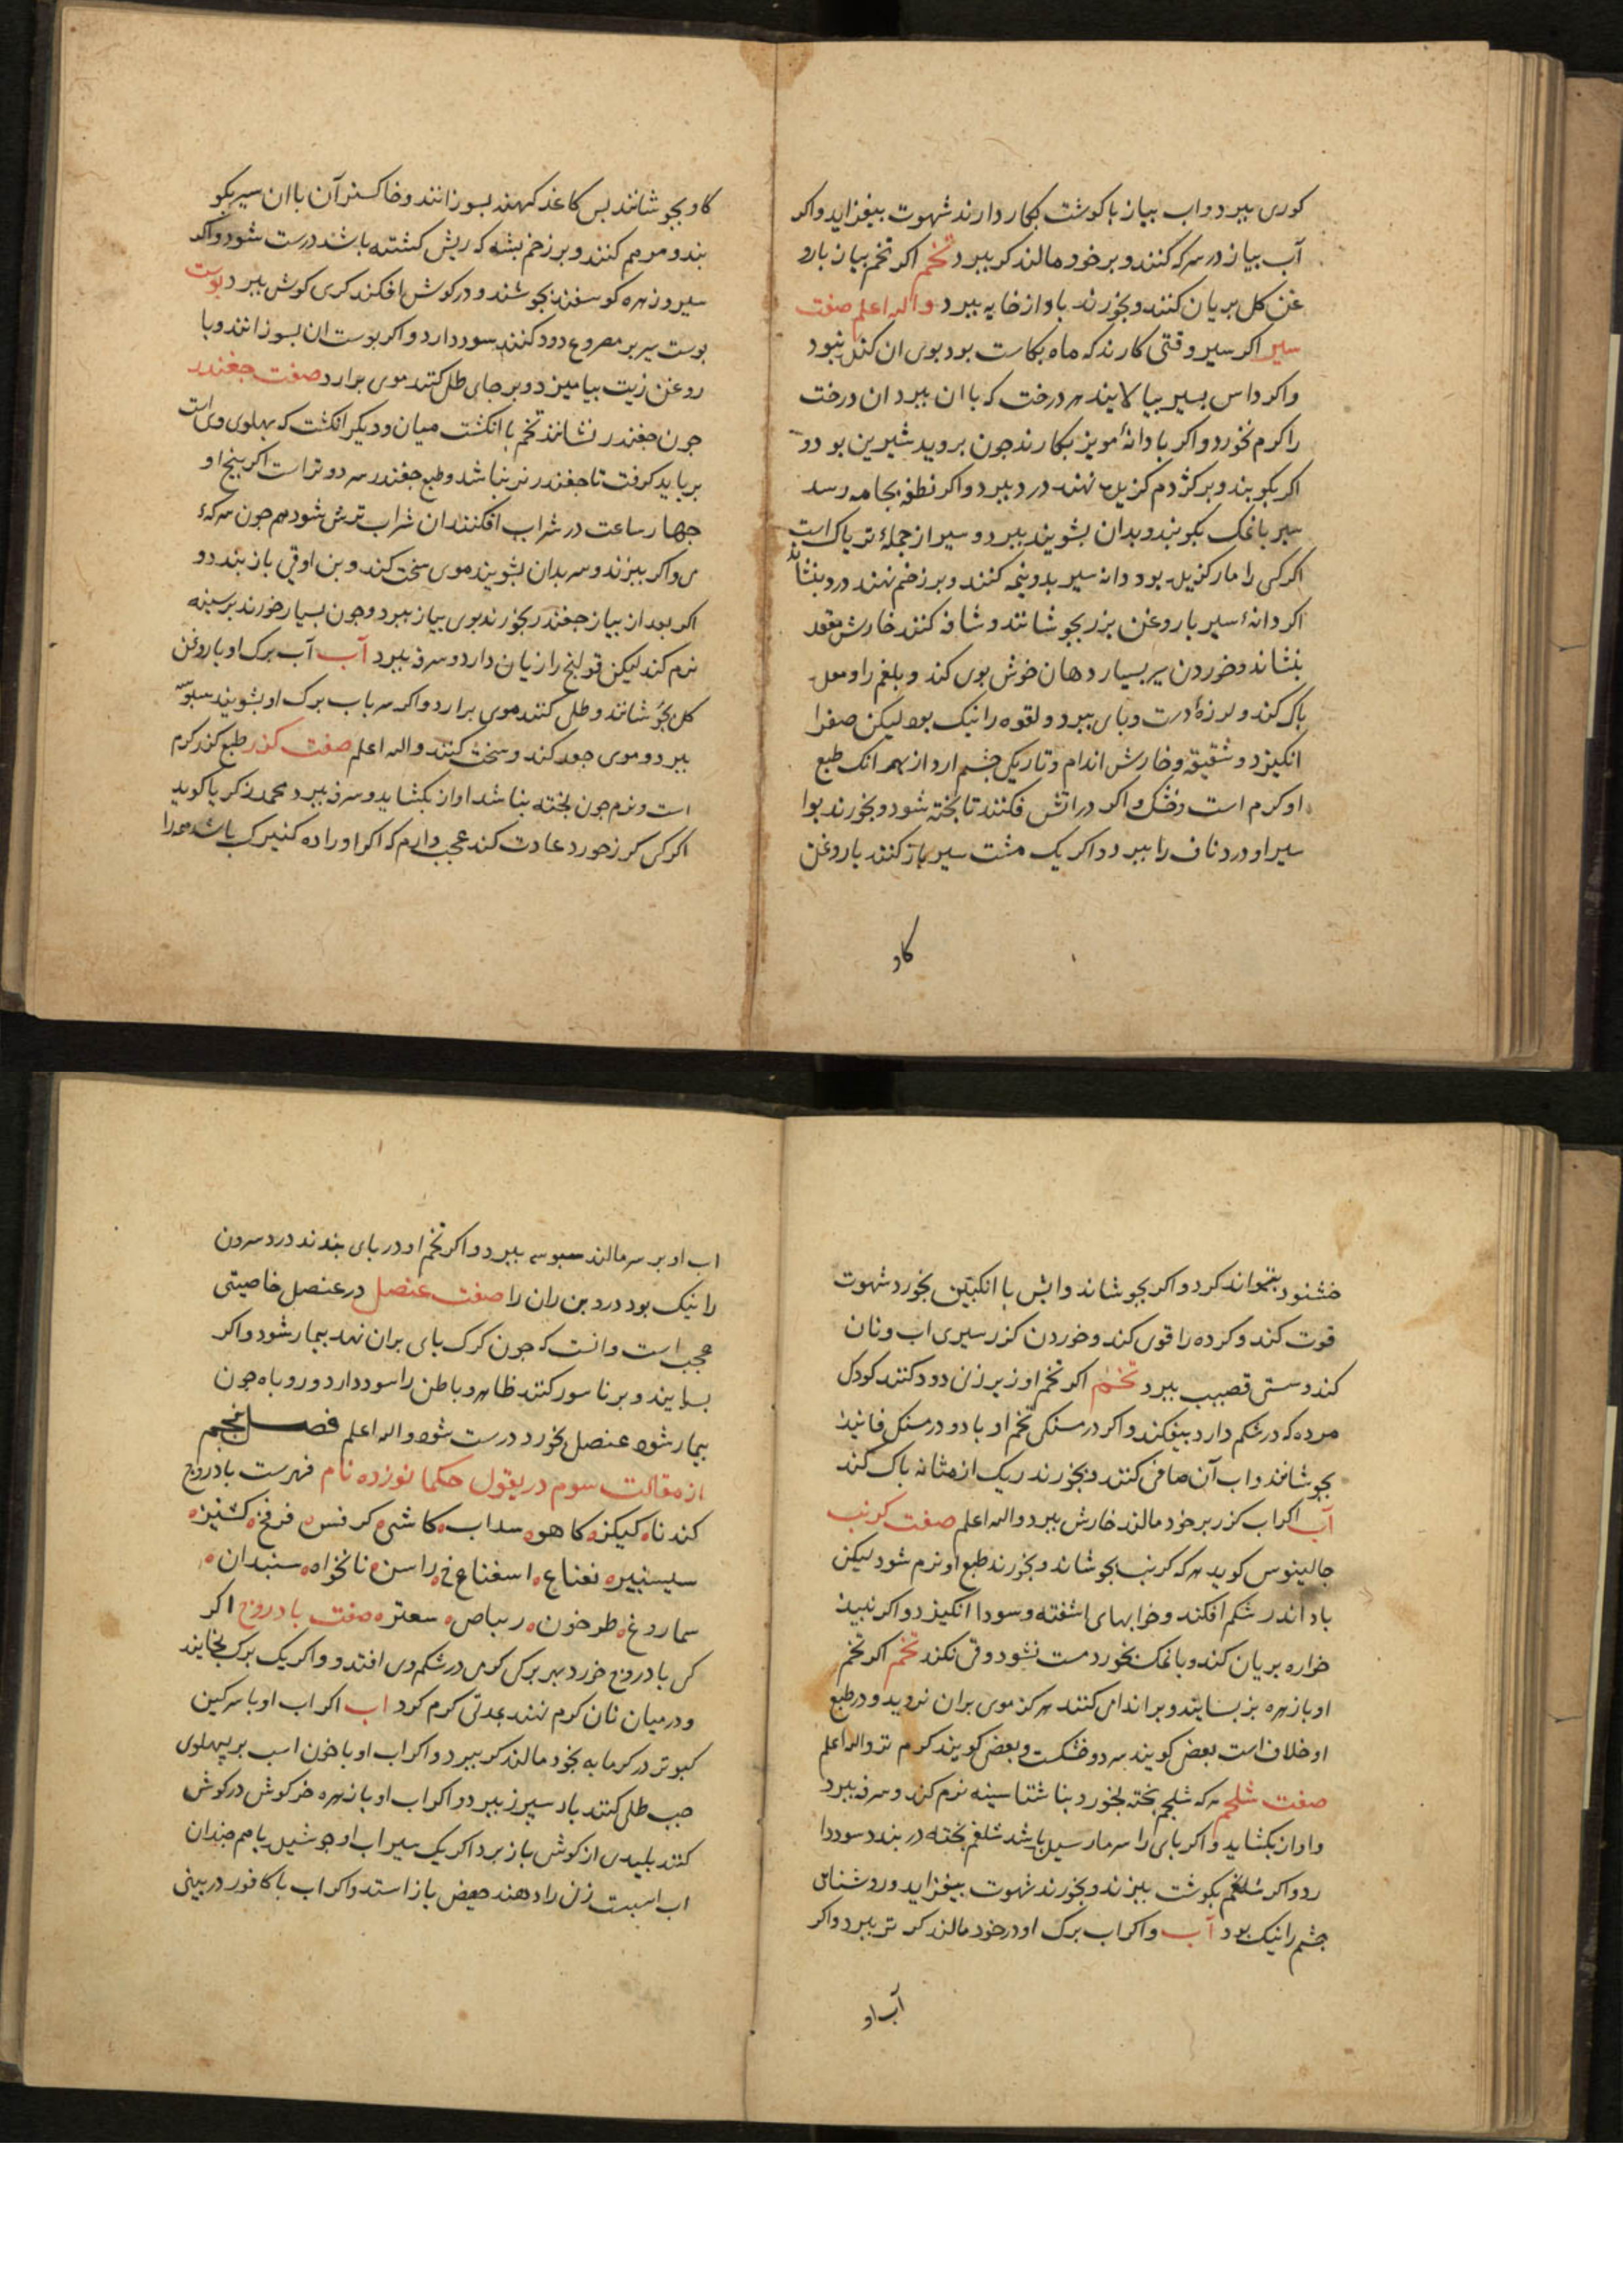 کوری ببرد و اب بیاز با کوشت بکار دارند شهوت بیفزاید واکر
آب بیاز در سرکه کنند و بر خود مالند کر ببرد تخم اکر تخم بیاز با رو
غن کل بریان کنند و بخورند باد از خایه ببرد والله اعلم صفت
سیر اکر سیر وقتی کارند که ماه بکاست بود بوی ان کنده نبود
واکر داس بسیر بیالایند هر درخت که با ان ببرد ان درخت
را کرم نخورد واکر با دانهٔ مویز بکارند جون بروید شیرین بود و
اکر بکوبند و بر کژدم کزیده نهند درد ببرد واکر نطفه بجامه رسد
سیر با نمک بکوبند و بدان بشویند ببرد و سیر از جملهٔ تریاک است
اکر کسی را مار کزیده بود دانه سیر بدو نیمه کنند و بر زخم نهند درد بنشاند
اکر دانهٔ سیر با روغن بزر بجوشانند و شافه کنند خارش مقعد
بنشاند و خوردن سیر بسیار دهان خوش بوی کند و بلغم را و معده
باک کند و لرزهٔ دست و بای ببرد و لقوه را نیک بود لیکن صفرا
انکیزد و شقیقه و خارش اندام و تاریکی جشم ارد از بهر انک طبع
او کرم است و خشک و اکر در اتش فکنند تا بخته شود و بخورند بوا
سیر او درد ناف را ببرد و اکر یک مشت سیر باز کنند با روغن
کاو
کاو بجوشانند بس کاغذ کهنه بسوزانند و خاکستر آن با ان سیر بکو
بند و مرهم کنند و بر زخم بشه که ریش کشته باشد درست شود واکر
سیر و زهره کوسفند بجوشند و در کوش افکند کری کوش ببرد بوست
بوست سیر بر مصروع دود کنند سود دارد و اکر بوست ان بسوزانند و با
روغن زیت بیامیزد و بر جای طلی کنند موی برارد صفت جغندر
جون جغندر نشانند تخم با انکشت میان و دیکر انکشت که بهلوی وی است
بر باید کرفت تا جغندر نر نباشد و طبع جغندر سرد و تر است اکر بیخ او
جهار ساعت در شراب افکنند ان شراب ترش شود هم جون سرکهٔ
می واکر ببزند و سر بدان بشویند موی سخت کند و بن اوقی باز بندد و
اکر بعد از بیاز جغندر بخورند بوی بیاز ببرد و جون بسیار خورند بر سینه
نرم کند لیکن قولنج را زیان دارد و سرفه ببرد آب آب برک او با روغن
کل بجوشانند و طلی کنند موی برارد و اکر سر باب برک او بشویند سبوسه
ببرد و موی جعد کند و سخت کنند والله اعلم صفت کزر طبع کزر کرم
است و نرم جون بخته بناشد اواز بکشاید و سرفه ببرد محمد زکریا کوید
اکر کسی کزر خورد عادت کند عجب دارم که اکر او را ده کنیزک باشد همه را
خشنود بتواند کرد و اکر بجوشاند و ابش با انکبین بخورد شهوت
قوت کند و کرده را قوی کند و خوردن کزر سیری اب و نان
کند و سستی قضیب ببرد تخم اکر تخم او زیر زنی دود کنند کودک
مرده که در شکم دارد بیفکند و اکر درمسنکی تخم او با دو درمسنک فانید
بجوشانند و اب آن صافی کنند و بخورند ریک از مثانه باک کند
آب اکر اب کزر بر خود مالند خارش ببرد والله اعلم صفت کرنب
جالینوس کوید هر که کرنب بجوشاند و بخورند طبع او نرم شود لیکن
باد اندر شکم افکند و خوابهای اشفته و سودا انکیزد و اکر نبید
خواره بریان کند و با نمک بخورد مست نشود و قی نکند تخم اکر تخم
او با زهره بز بسایند و بر اندامی کنند هرکز موی بران نروید و در طبع
او خلاف است بعضی کویند سرد و خشکست و بعضی کویند کرم تر والله اعلم
صفت شلجم هر که شلجم بخته بخورد بناشتا سینه نرم کند و سرفه ببرد
و اواز بکشاید و اکر بای را سرما رسیده باشد شلغم بخته در بندد سود دا
رد و اکر شلغم بکوشت ببزند و بخورند شهوت بیفزاید و روشنای
جشم را نیک بود آب و اکر اب برک او در خود مالند کر تر ببرد واکر
آب او
اب او بر سر مالند سبوسه ببرد و اکر تخم او در بای بندند درد سرون
را نیک بود درد بن ران را صفت عنصل در عنصل خاصیتی
عجب است و انست که جون کرک بای بران نهد بیمار شود و اکر
بسایند و بر ناسور کنند ظاهر و باطن را سود دارد و روباه جون
بیمار شود عنصل بخورد درست شود والله اعلم فصل پنجم
از مقالت سوم در بقول حکما نوزده نام فهرست بادروج
کندنا کیکز کاهو سداب کاشی کرفس فرفخ کشنیز
سیسنبر نعناع اسفناخ راسن نانخواه سبندان
سماروغ طرخون ریباص سعتر صفت بادروج اکر
کسی بادروج خورد بهر برکی کرمی در شکم وی افتد و و اکر یک برک بخایند
و در میان نان کرم نهند بمدتی کرم کرد اب اکر اب او با سرکین
کبوتر در کرمابه بخود مالند کر ببرد و اکر اب او با خون اسب بر بهلوی
جب طلی کنند باد سپرز ببرد و اکر اب او با زهره خرکوش در کوش
کنند بلیدی از کوش باز برد اکر یک سیر اب او جوشیده با هم جندان
اب اسبست زن را دهند حیض باز استد و اکر اب با کافور در بینی